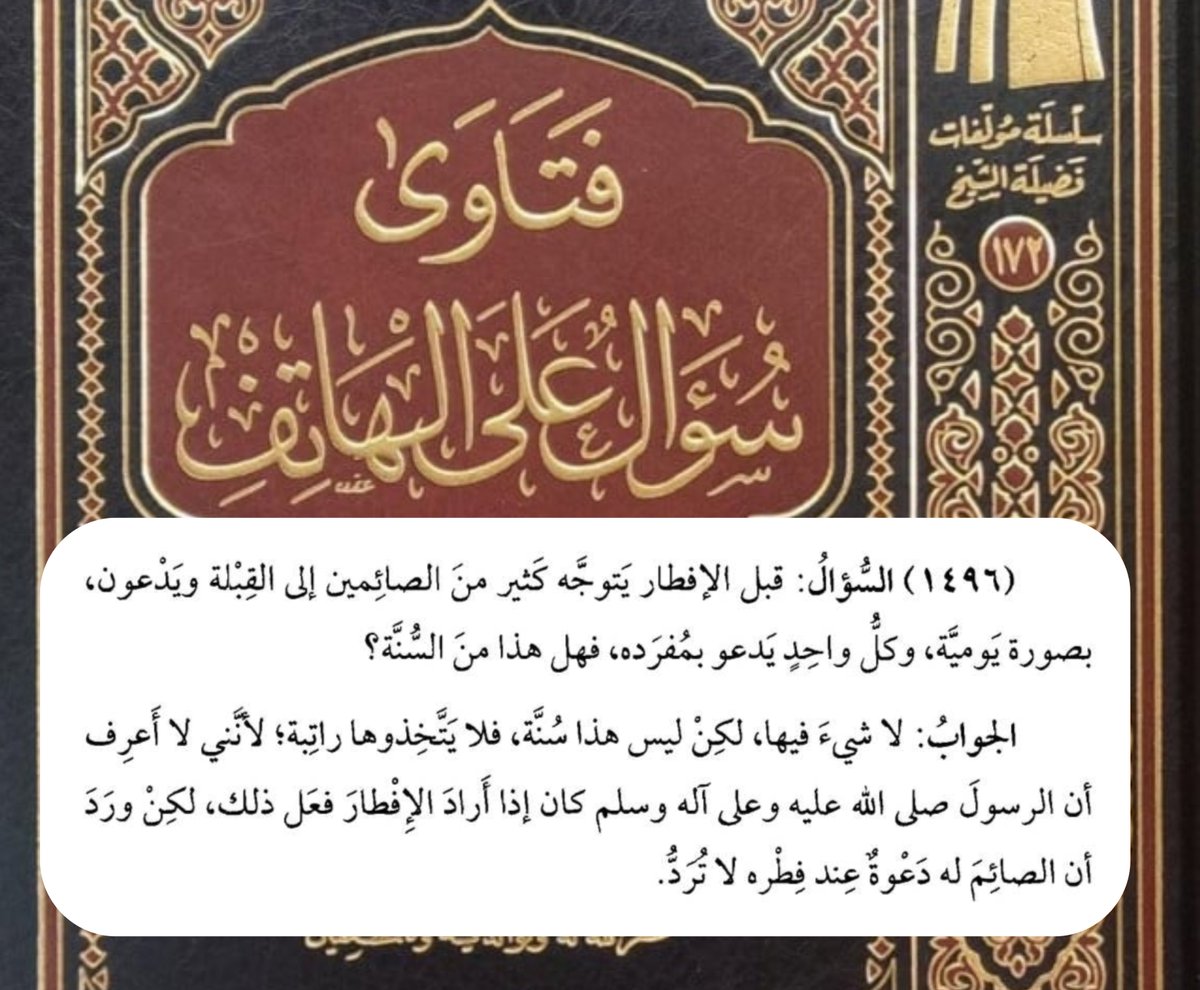 فَتَاوَى
سُؤَال عَلَى الهَاتِفِ
سِلْسِلَة مُؤلّفَات
فَضِيلَة الشّيْخ
١٧٢
(١٤٩٦) السُّؤالُ: قبل الإفطار يَتوجَّه كَثير منَ الصائِمين إلى القِبْلة ويَدْعون،
بصورة يَوميَّة، وكلُّ واحِدٍ يَدعو بمُفرَده، فهل هذا منَ السُّنَّة؟
الجوابُ: لا شيءَ فيها، لكِنْ ليس هذا سُنَّة، فلا يَتَّخِذوها راتِبة؛ لأنَّني لا أَعرِف
أن الرسولَ صلى الله عليه وعلى آله وسلم كان إذا أَرادَ الإِفْطارَ فعَل ذلك، لكِنْ ورَدَ
أن الصائِمَ له دَعْوةٌ عِند فِطْره لا تُرَدُّ.